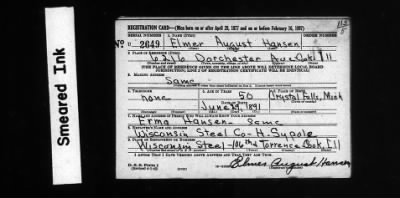 Smeared Ink
REGISTRATION CARD—(Men born on or after April 28, 1877 and on or before February 16, 1897)
SERIAL NUMBER 1. NAME (Print) ORDER NUMBER
U 2649 Elmer August Hansen
2. PLACE OF RESIDENCE (Print)
10216 Dorchester Ave Cook Ill
[THE PLACE OF RESIDENCE GIVEN ON THE LINE ABOVE WILL DETERMINE LOCAL BOARD
JURISDICTION; LINE 2 OF REGISTRATION CERTIFICATE WILL BE IDENTICAL]
3. MAILING ADDRESS
Same
4. TELEPHONE 5. AGE IN YEARS 6. PLACE OF BIRTH
none 50 Crystal Falls, Mich
June 29, 1891
7. NAME AND ADDRESS OF PERSON WHO WILL ALWAYS KNOW YOUR ADDRESS
Erma Hansen Same
8. EMPLOYER'S NAME AND ADDRESS
Wisconsin Steel Co-
9. PLACE OF EMPLOYMENT OR BUSINESS
Wisconsin Steel-106th & Torrence Cook, Ill
I AFFIRM THAT I HAVE VERIFIED ABOVE ANSWERS AND THAT THEY ARE TRUE.
Elmer August Hansen